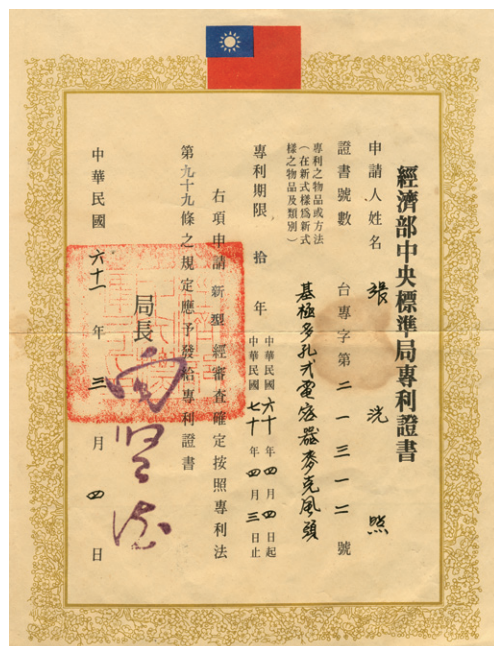 經濟部中央標準局專利證書
申請人姓名 張洸煦
證書號數 台專字第二一三一二號
專利之物品或方法
(在新式樣爲新式
樣之物品及類別)
基極多孔式電容器麥克風頭
專利期限 拾年
中華民國六十年四月四日起
中華民國七十年四月三日止
右項申請新型經審查確定按照專利法
第九十九條之規定應予發給專利證書
局長
中華民國六十一年三月四日